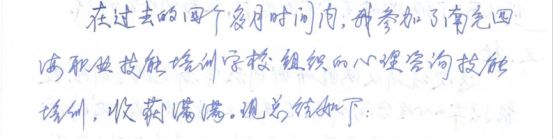 在过去的四个多月时间内，我参加了南充四
海职业技能培训学校组织的心理咨询技能
培训，收获满满。现总结如下：